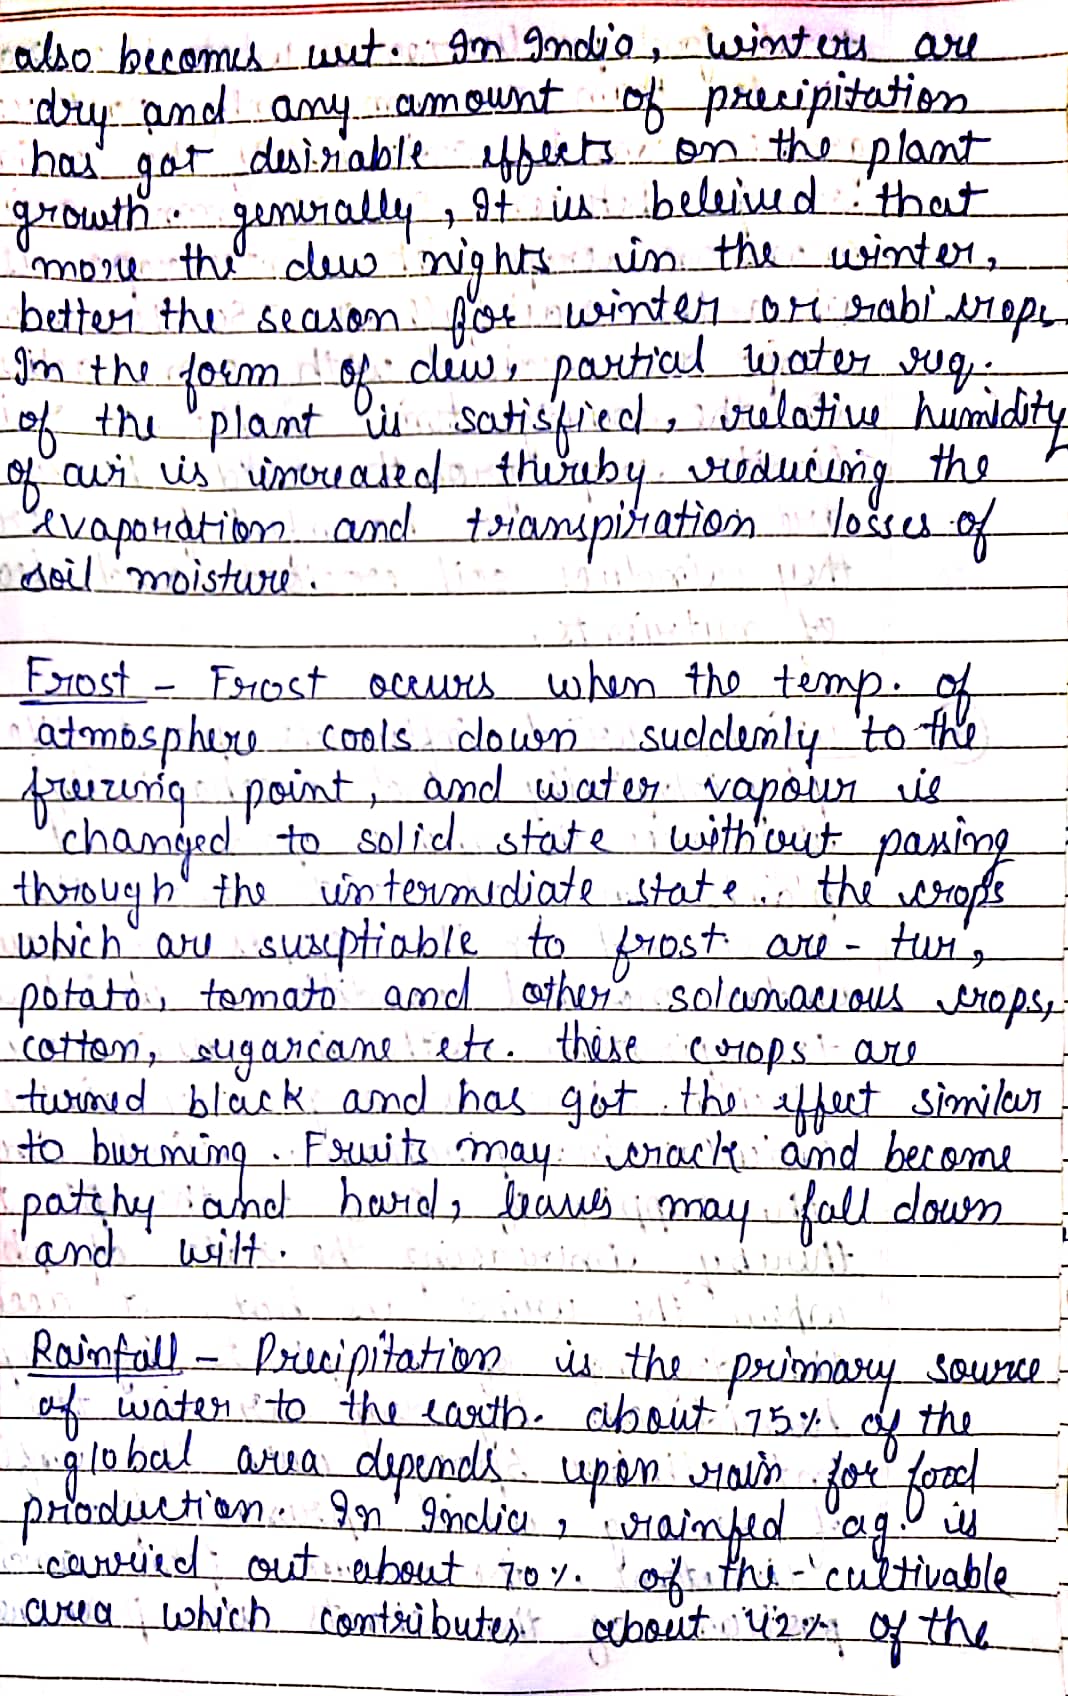 also becomes wet. In India, winters are
dry and any amount of precipitation
has got desirable effects on the plant
growth. generally, It is beleived that
more the dew nights in the winter,
better the season for winter or rabi crops
In the form of dew, partial water req.
of the plant is satisfied, relative humidity
of air is increased thereby reducing the
evaporation and transpiration losses of
soil moisture.
Frost - Frost occurs when the temp. of
atmosphere cools down suddenly to the
freezing point, and water vapour is
changed to solid state without passing
through the intermediate state. the crops
which are susceptiable to frost are - tur,
potato, tomato and other solanacious crops,
cotton, sugarcane etc. these crops are
turned black and has got the effect similar
to burning. Fruits may crack and become
patchy and hard, leaves may fall down
and wilt.
Rainfall - Precipitation is the primary source
of water to the earth. about 75% of the
global area depends upon rain for food
production. In India, rainfed ag. is
carried out about 70% of the cultivable
area which contributes about 42% of the